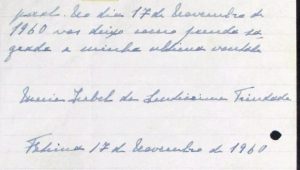 No dia 17 de Novembro de
1960 vos deixo como prenda sa
grada a minha ultima vontade
Maria Isabel da Santissima Trindade
Fatima 17 de Novembro de 1960